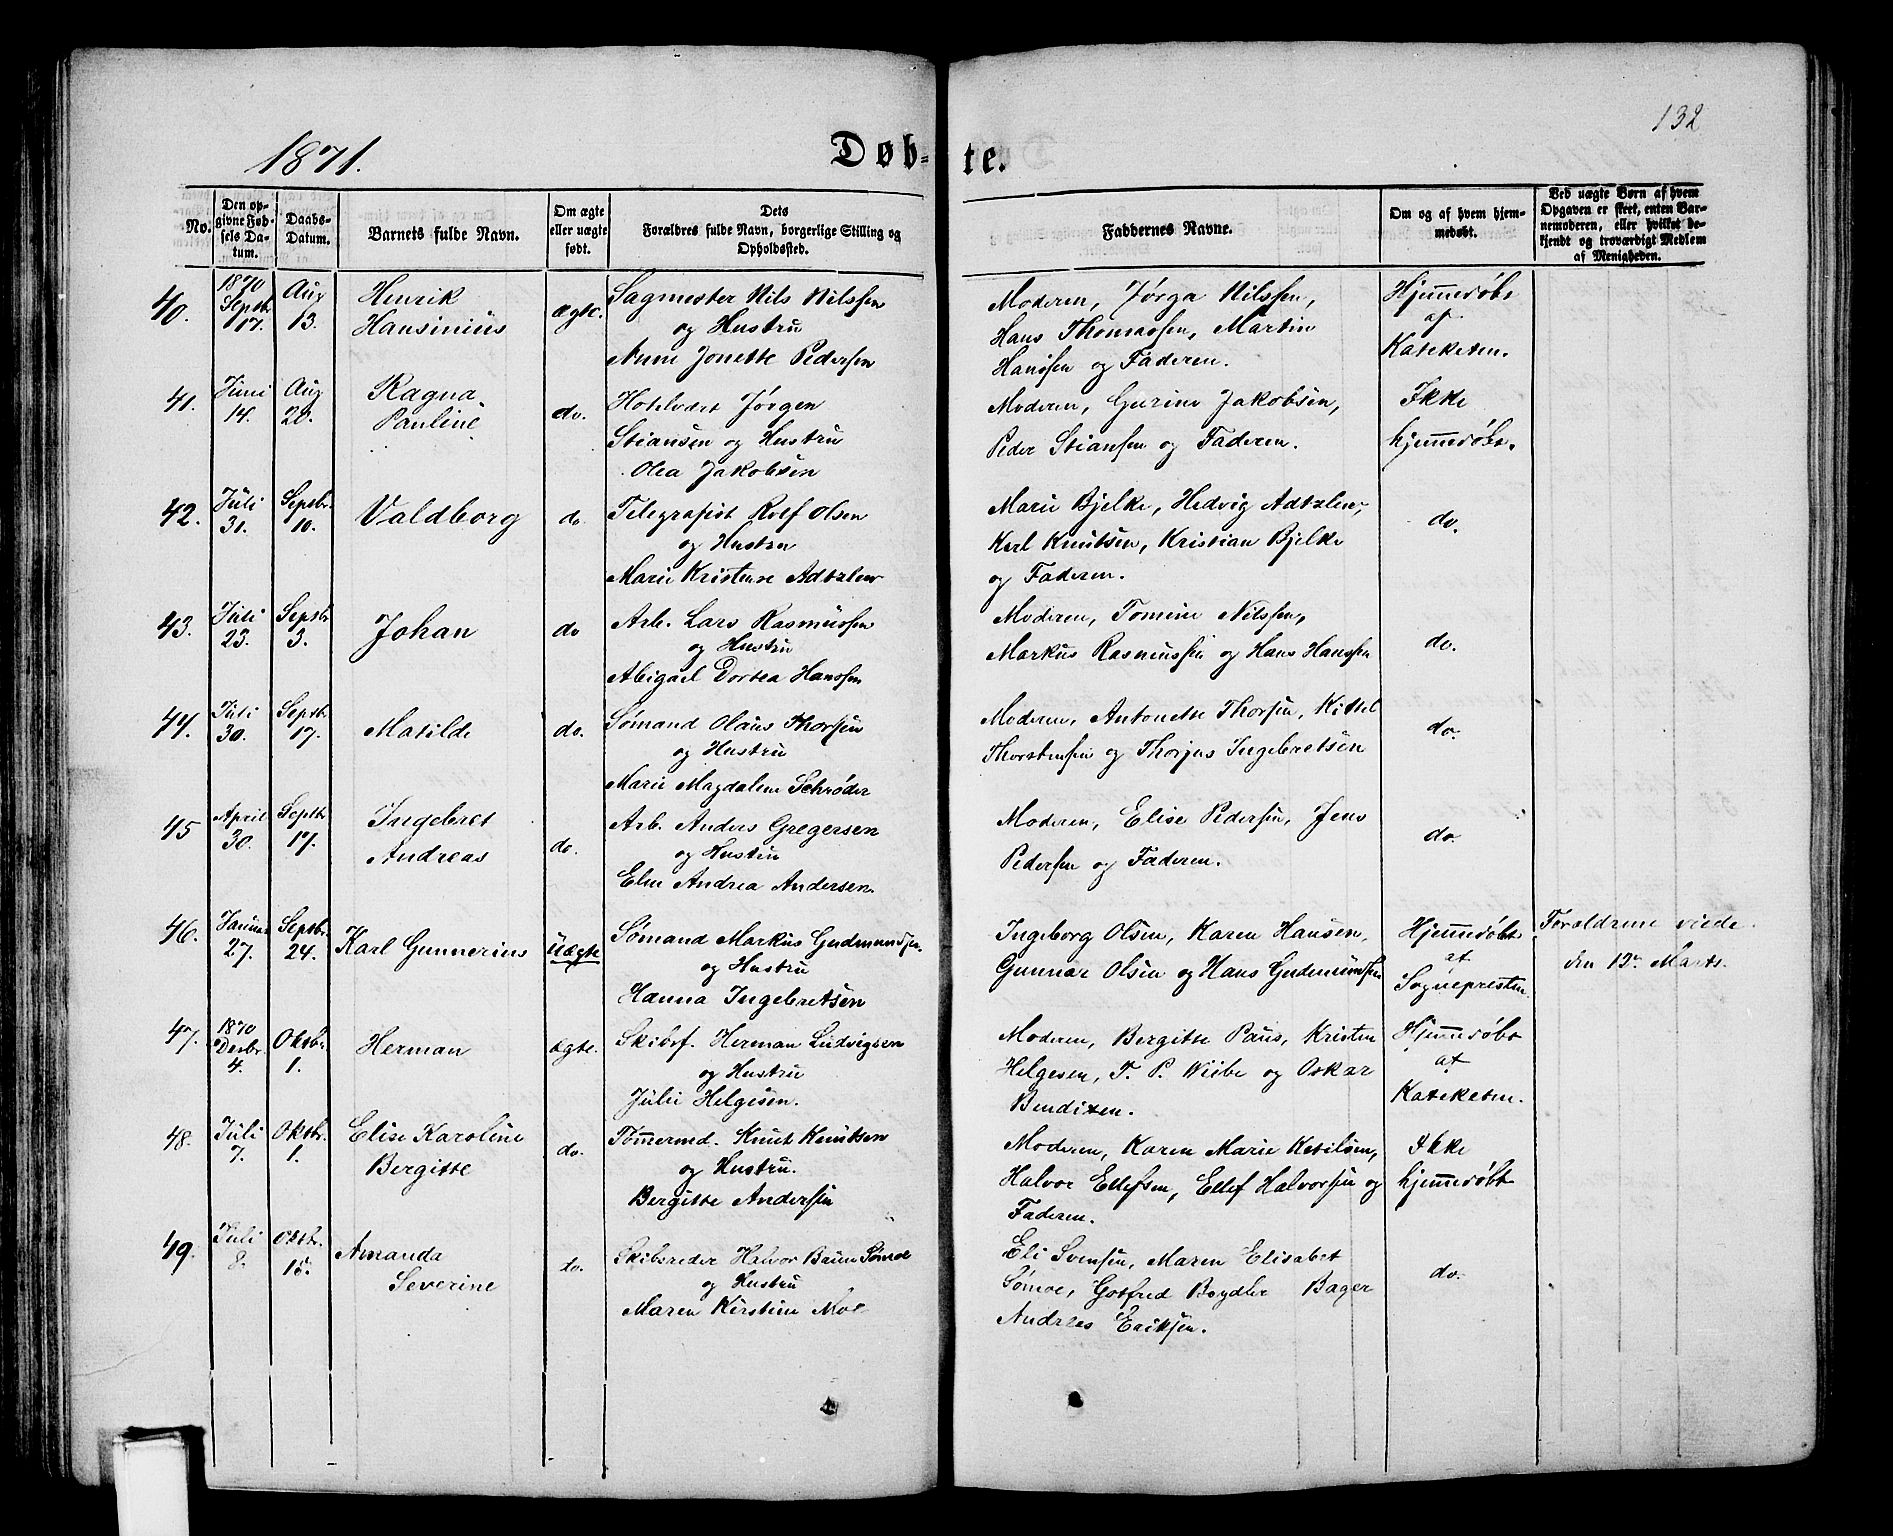 132
1871.
Døb-te.
No.
Den op-
givne Fød-
sels Da-
tum.
Daabs-
Datum.
Barnets fulde Navn.
Om ægte
eller uægte
født.
Dets
Forældres fulde Navn, borgerlige Stilling og
Opholdssted.
Faddernes Navne.
Om og af hvem hjem-
medøbt.
Ved uægte Børn af hvem
Opgaven er skeet, enten Bar-
nemoderen, eller hvilket be-
kjendt og troværdigt Medlem
af Menigheden.
40.
1870
Septbr
17.
Aug
13.
Henrik
Hansinius
ægte.
Sagmester Nils Nilssen
og Hustru
Anne Jonette Pedersen
Moderen, Jørga Nilssen,
Hans Thomassen, Martin
Hanssen og Faderen.
Hjemmedøbt
af
Kateketen.
41.
Juni
14.
Aug
20.
Ragna
Pauline
do.
Hotelvært Jørgen
Stiansen og Hustru
Olea Jakobsen
Moderen, Gurine Jakobsen,
Peder Stiansen og Faderen.
Ikke
hjemmedøbt.
42.
Juli
31.
Septbr.
10.
Valdborg
do.
Telegrafist Rolf Olsen
og Hustru
Marie Kristense Adtzlew
Marie Bjelke, Hedvig Adtzlew,
Karl Knutsen, Kristian Bjelke
og Faderen.
do.
43.
Juli
23.
Septbr
3.
Johan
do
Arb. Lars Rasmussen
og Hustru
Abigael Dortea Hanssen
Moderen, Tomine Nilssen,
Markus Rasmussen og Hans Hanssen
do.
44.
Juli
30.
Septbr
17.
Matilde
do.
Sømand Olaus Thorsen
og Hustru
Marie Magdalene Schrøder
Moderen, Antonette Thorsen, Kittel
Thorstensen og Thorjus Ingebretsen
do.
45
April
30.
Septbr
17.
Ingebret
Andreas
do.
Arb. Anders Gregersen
og Hustru
Elen Andrea Andersen.
Moderen, Elise Pedersen, Jens
Pedersen og Faderen.
do.
46.
Januar
27.
Septbr.
24.
Karl Gunnerius
Uægte
Sømand Markus Gudmundsen
og Hustru
Hanna Ingebretsen
Ingeborg Olsen, Karen Hansen,
Gunnar Olsen og Hans Gudmundsen
Hjemmedøbt
af
Sognepresten.
Forældrene viede
den 12. Marts.
47.
1870
Decbr.
4.
Oktbr.
1.
Herman
ægte.
Skibsf. Herman Ludvigsen
og Hustru
Julie Helgesen.
Moderen, Bergitte Paus, Kristen
Helgesen, T. P. Wibe og Oskar
Bendixen.
Hjemmedøbt
af
Kateketen.
48.
Juli
7.
Oktbr.
1.
Elise Karoline
Bergitte
do.
Tømmermd. Knut Knutsen
og Hustru.
Bergitte Andersen
Moderen, Karen Marie Ketilsen,
Halvor Ellefsen, Ellef Halvorsen og
Faderen.
Ikke
hjemmedøbt
49.
Juli
8.
Oktbr.
15.
Amanda
Severine
do.
Skibsreder Halvor Bruun Sømoe
og Hustru
Maren Kirstine Moe
Eli Svensen, Maren Elisabet
Sømoe, Gotfred Boydler Bager
Andreas Eriksen.
do.